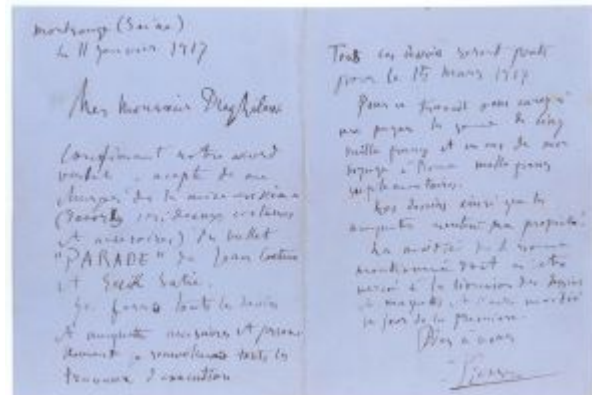 montrouge (Seine)
le 11 janvier 1917
Cher Monsieur Diaghilew
Confirmant notre accord
verbal, accepte de me
charger de la mise en scène
(decors, rideaux, costumes
et accessoires) du ballet
"PARADE" de Jean Cocteau
et Erik Satie.
Je ferai tous les dessins
et maquettes necessaires et
travaux d'execution
Tous ces dessins seront prets
pour le 15 mars 1917
Pour ce travail vous
me payer la somme de cinq
mille francs et en cas de mon
voyage à Rome mille francs
suplementaires.
Les dessins ainsi que les
maquettes restent ma propriété.
La moitié de la somme
mentionnée doit m'etre
versée à la livraison des dessins
et maquettes et l'autre moitié
le jour de la première.
Picasso